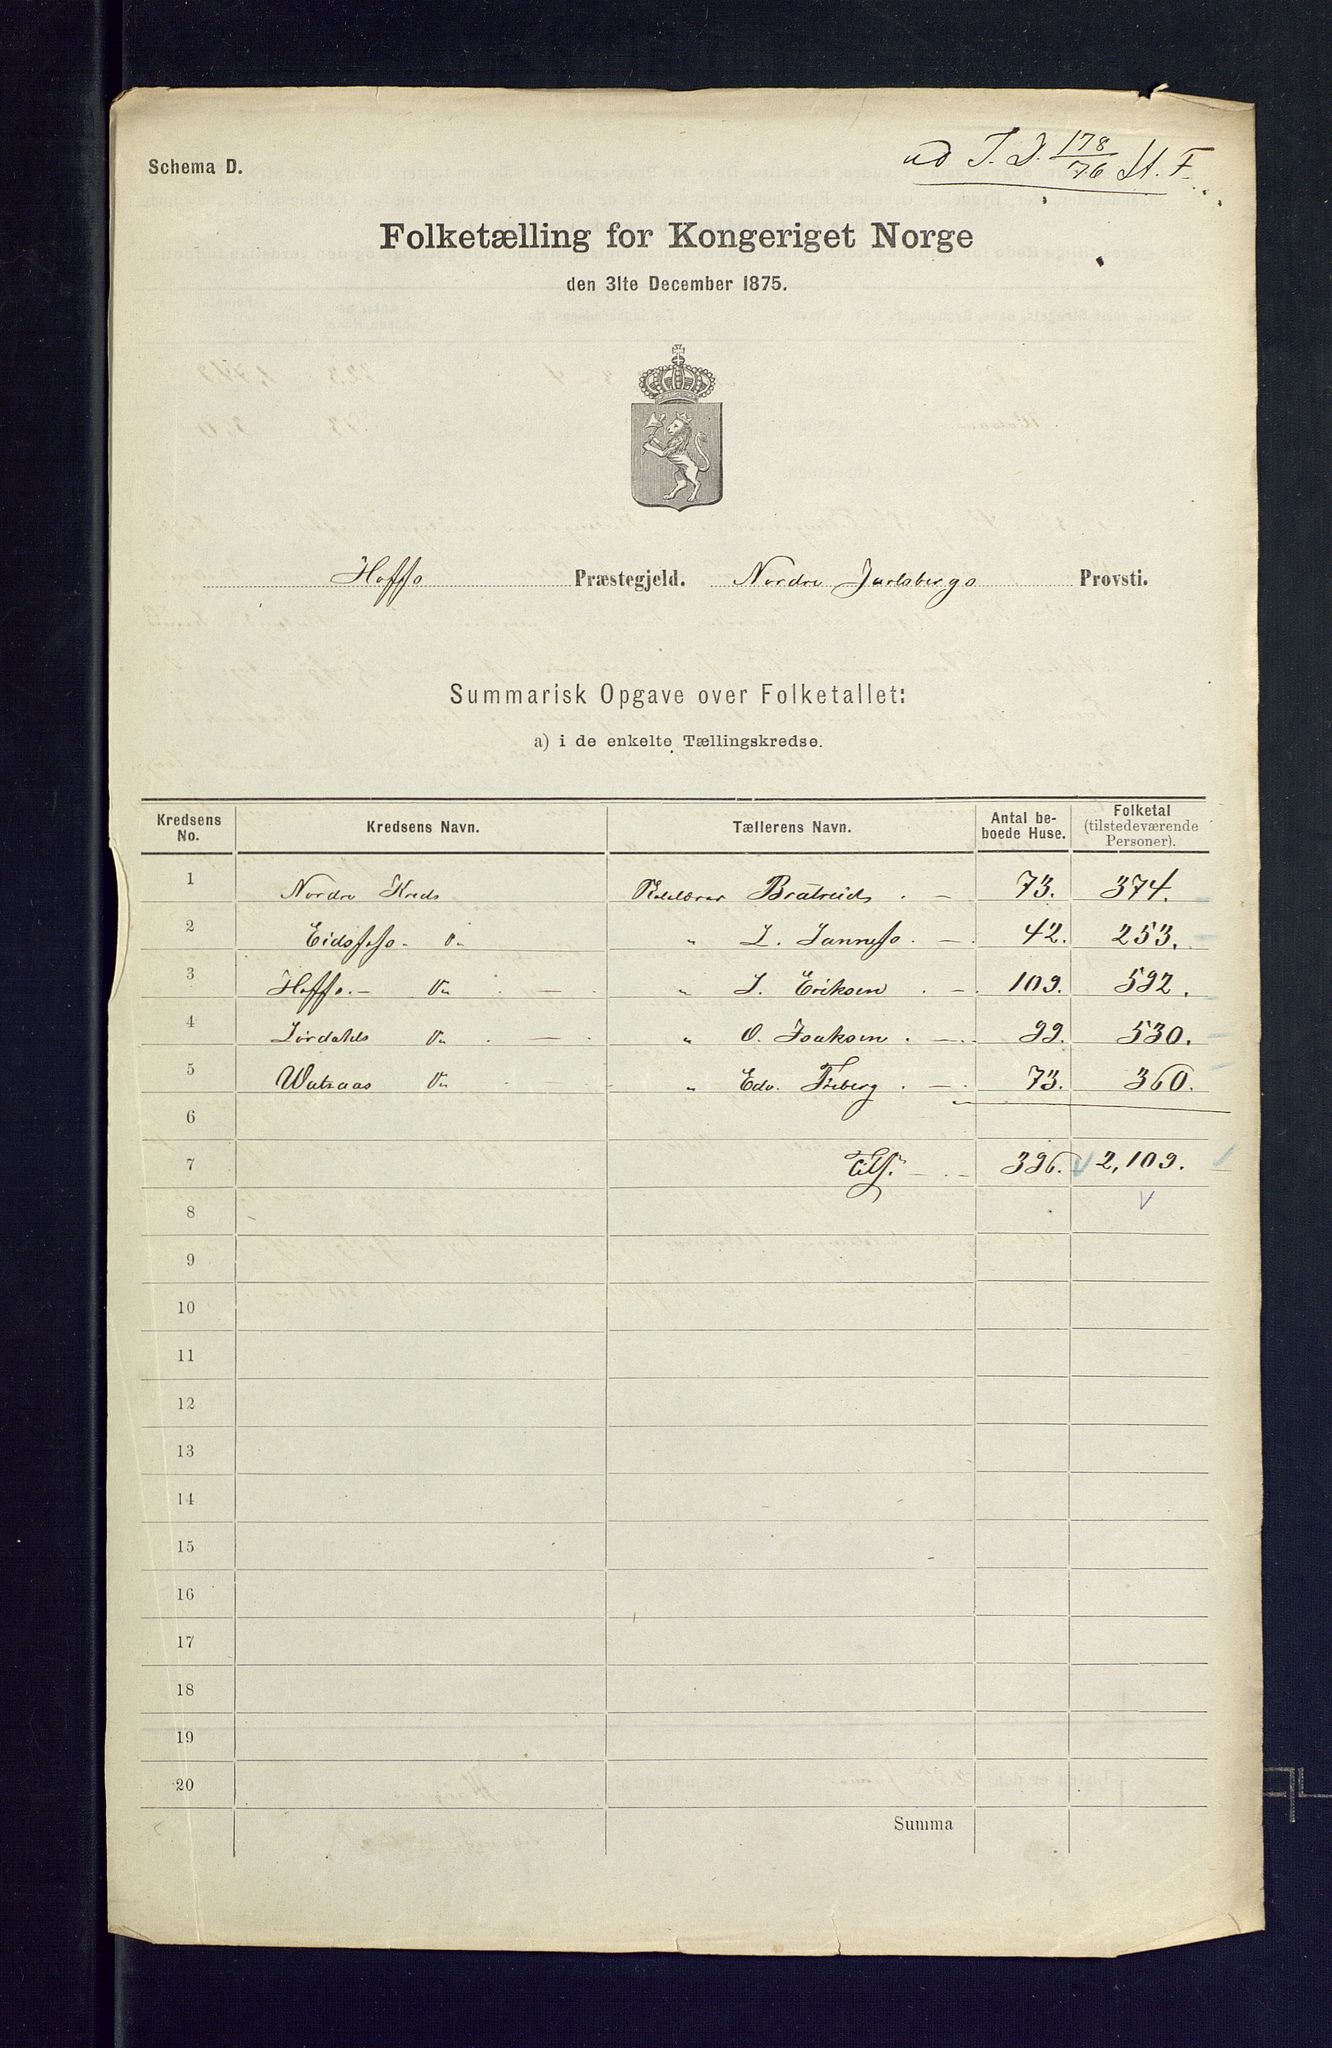 ad T. J. 178/76 St. F.
Schema D.
Folketælling for Kongeriget Norge
den 31te December 1875.
Hoffs Præstegjeld. Nordre Jarlsbergs Provsti.
Summarisk Opgave over Folketallet:
a) i de enkelte Tællingskredse.
Kredsens No. Kredsens Navn. Tællerens Navn. Antal beboede Huse. Folketal (tilstedeværende Personer).
1 Nordre Kreds 73. 374.
2 Eidsfos - Do " L. 42. 253.
3 Hoffs. - Do - " J. Eriksen - 109. 592.
4 Do - " O. Isaksen - 99. 530.
5 Do - " Edv. Friberg - 73. 360.
6
7 Tils. - 396. 2,109.
8
9
10
11
12
13
14
15
16
17
18
19
20
Summa